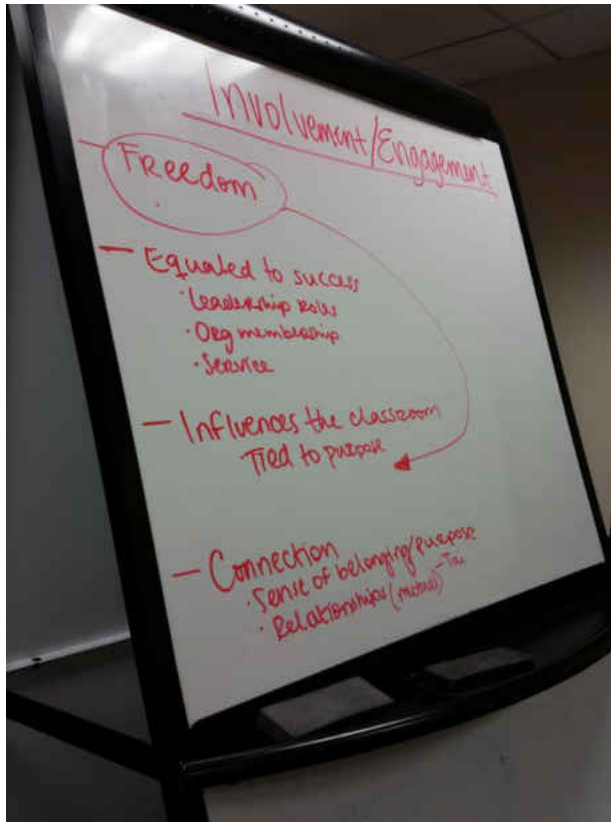 Involvement/Engagement
— Freedom
— Equated to success
· Leadership Roles
· Org membership
· Service
— Influences the classroom
Tied to purpose
— Connection
· Sense of belonging/purpose
· Relationships (mutual) –